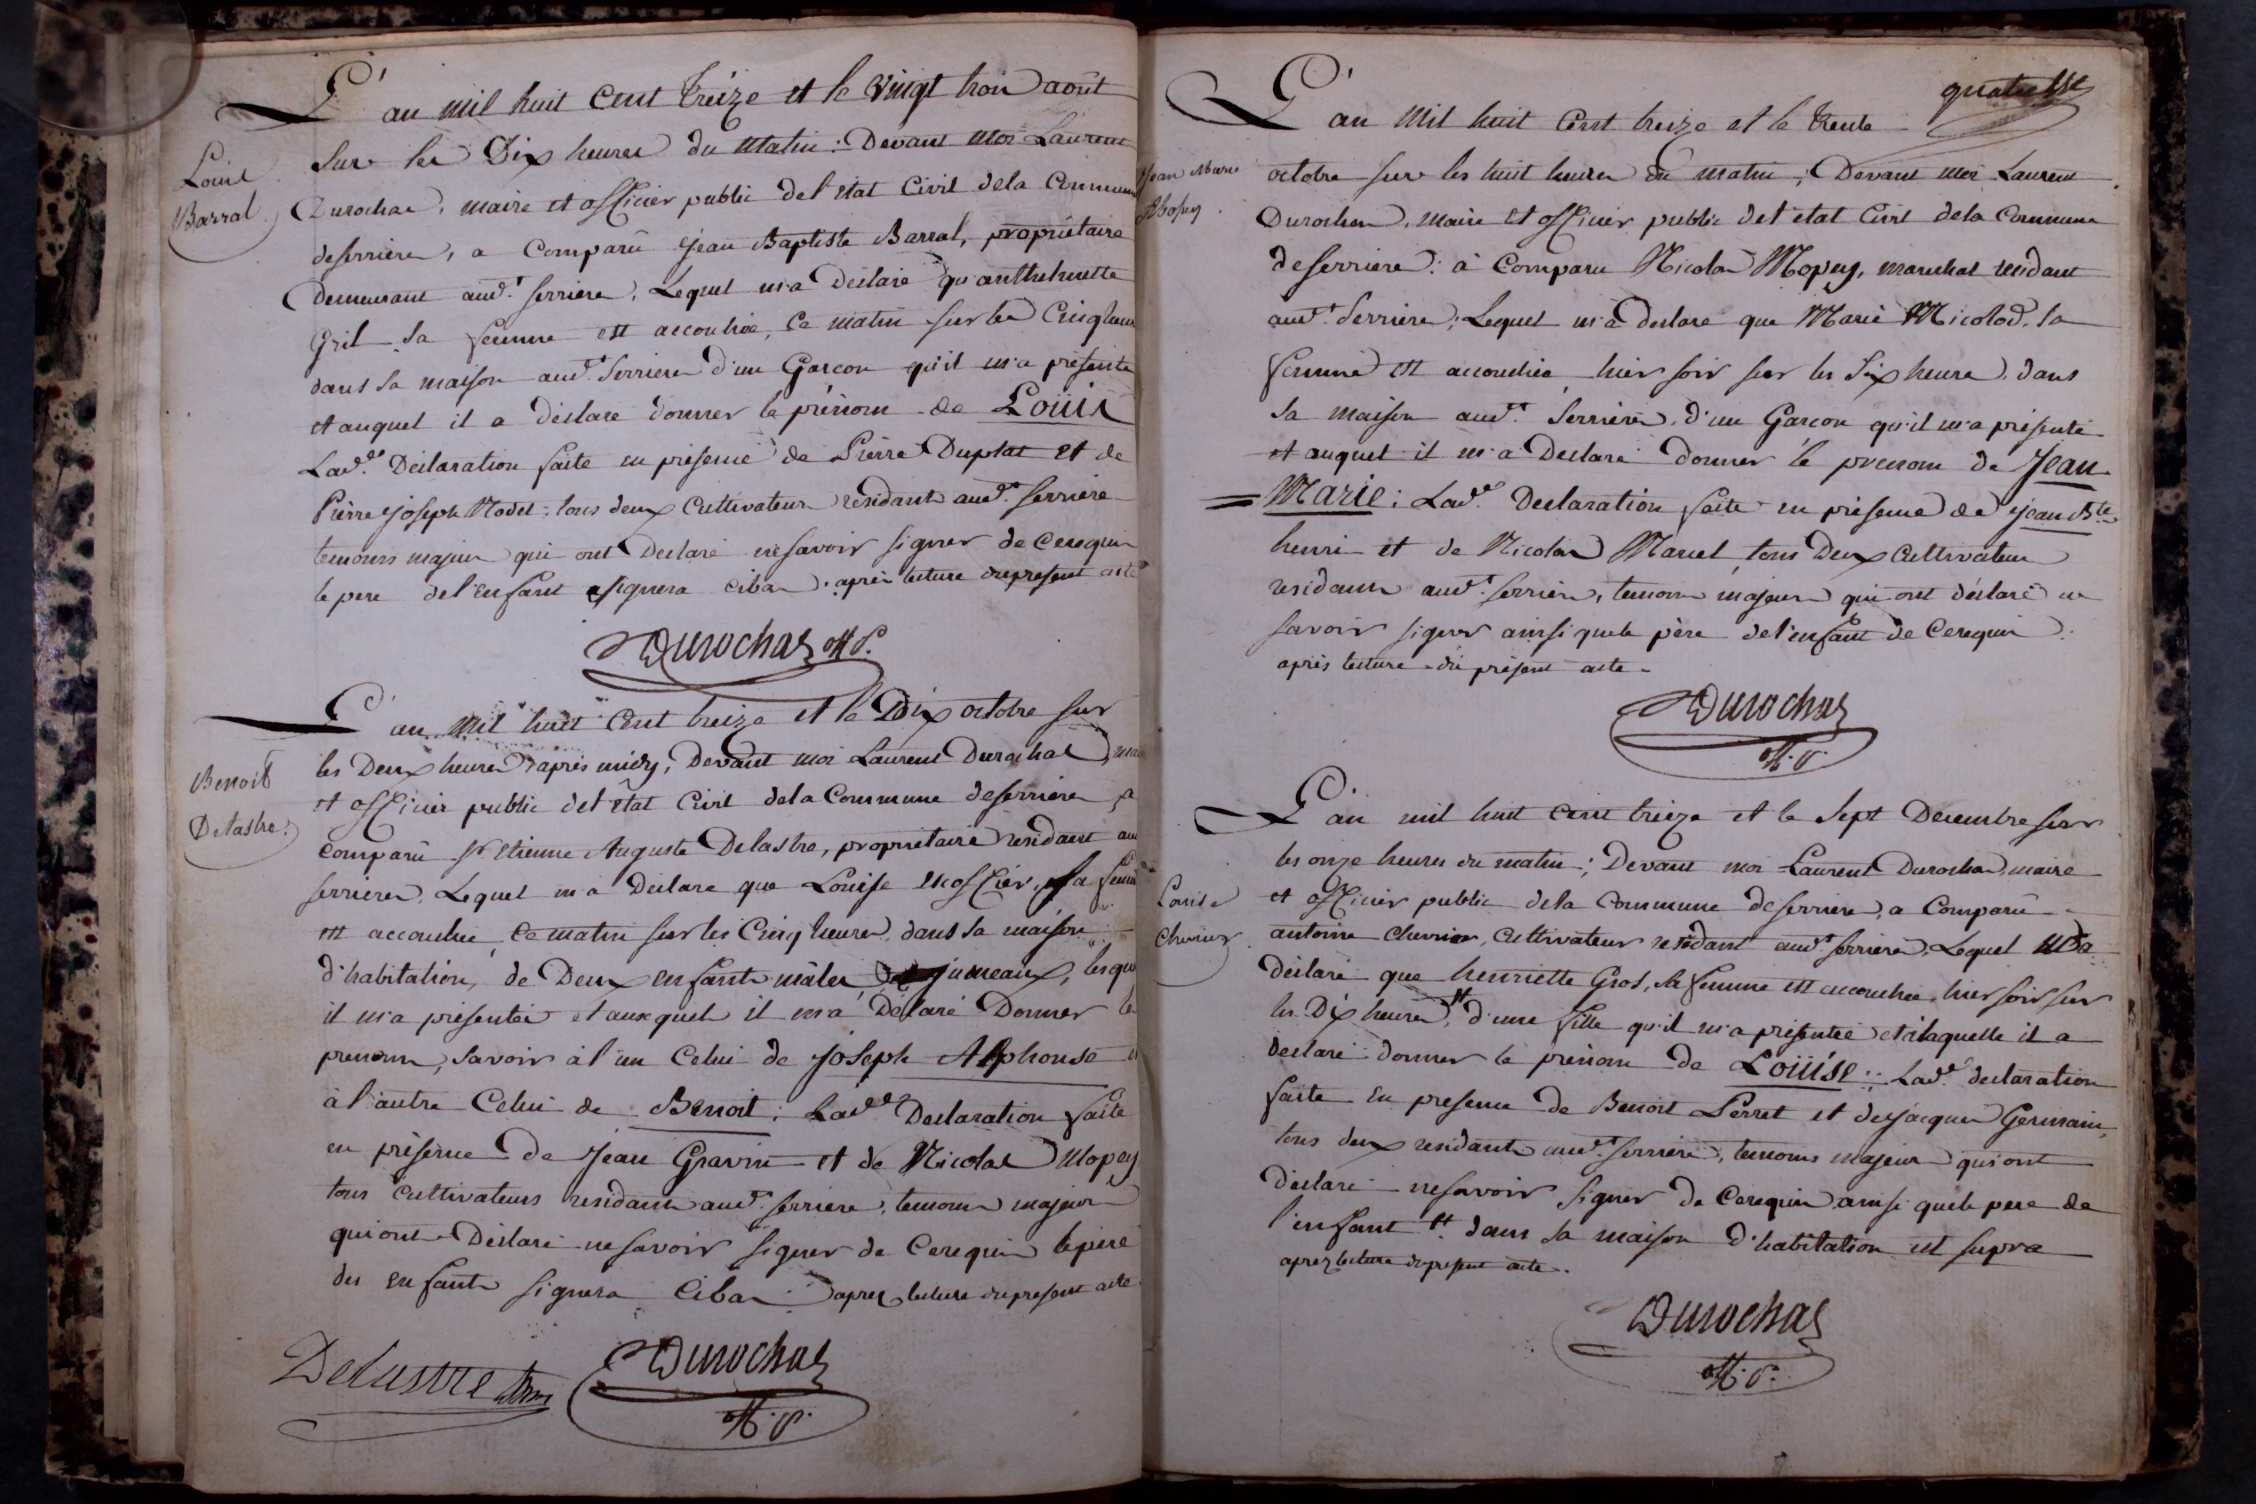 L'an mil huit cent treize et le vingt trois août
Louis
Barral
sur les Dix heures du matin : Devant moi Laurent
Durochas, maire et officier public de l'état Civil dela Commune
deserrieres, a Comparû jean Baptiste Barral, propriétaire
Demeurant aud.t serrieres, Lequel m'a Déclaré qu'anthelmette
Gril sa femme est accouchée, ce matin sur les Cinq heures
dans sa maison aud.t serrieres d'un Garcon qu'il m'a présenté
et auquel il a déclaré donner le prénom de Loüis
Lad.te Déclaration faite en présence de Pierre Duplat et de
Pierre joseph Nodet, tous deux Cultivateurs residants aud.t serrieres
temoins majeurs qui ont Declaré nesavoir signer de Cerequis
le pere del'enfant signera cibas. après lecture dupresent acte
Durochas off. P.
L'an mil huit cent treize et le Dix octobre sur
Benoit
Delastre
les Deux heures après midy, Devant moi Laurent Durochas, maire
et officier public del'état Civil dela Commune deserrieres a
Comparû Sr Etienne Auguste Delastre, propriétaire residant aud
serrieres, Lequel m'a Déclaré que Louise escoffier, sa femme
est accouchée, ce matin sur les Cinq heures, dans sa maison
d'habitation, de Deux enfants mâles jumeaux, lesquels
il m'a présentés et auxquels il m'a Déclaré Donner les
prenoms, savoir à l'un Celui de joseph Alphonse et
à l'autre Celui de Benoit ; Lad.te Declaration faite
en présence de jean Gravin et de Nicolas Mopey
tous cultivateurs residants aud.t serrieres, temoins majeurs
qui ont Déclaré nesavoir signer de Cerequis le père
des enfants signera Cibas : aprez lecture dupresent acte
Delastre
Durochas
off. P.
quatre
L'an Mil huit Cent treize et le trente
Jean Marie
Mopey
octobre sur les huit heures du matin, Devant moi Laurent
Durochas, maire et officier public del'état Civil dela Commune
deserrieres : à Comparu Nicolas Mopey, marechal residant
aud.t serrieres, Lequel m'a declaré que Marie Nicolod, sa
femme est accouchée hier soir sur les six heures, dans
sa maison aud.t serrieres, d'un Garcon qu'il m'a présenté
et auquel il m'a Declaré donner le prenom de Jean
Marie ; Lad.te Declaration faite en présence de jean Bte
henri et de Nicolas Marcel, tous Deux Cultivateurs
residants aud.t serrieres, temoins majeurs qui ont déclaré ne
savoir signer ainsi quele père del'enfant de Cerequis
après lecture du présent acte
Durochas
off. P.
L'an mil huit cent treize et le sept Decembre sur
les onze heures du matin ; Devant moi Laurent Durochas, maire
Louise
Chevrier
et officier public dela Commune deserrieres, a Comparû
antoine chevrier, cultivateur residant aud.t serrieres, Lequel m'a
déclaré que henriette Gros, sa femme est accouchée hier soir sur
les Dix heures, d'une fille qu'il m'a présentée et à laquelle il a
declaré donner le prénom de Loüise : Lad.te declaration
faite en presence de Benoit Perret et dejacques Germain,
tous deux residants aud.t serrieres, temoins majeurs qui ont
déclaré nesavoir signer de Cerequis ainsi quele pere de
l'enfant tt dans sa maison d'habitation ut supra
aprez lecture dupresent acte.
Durochas
off. P.